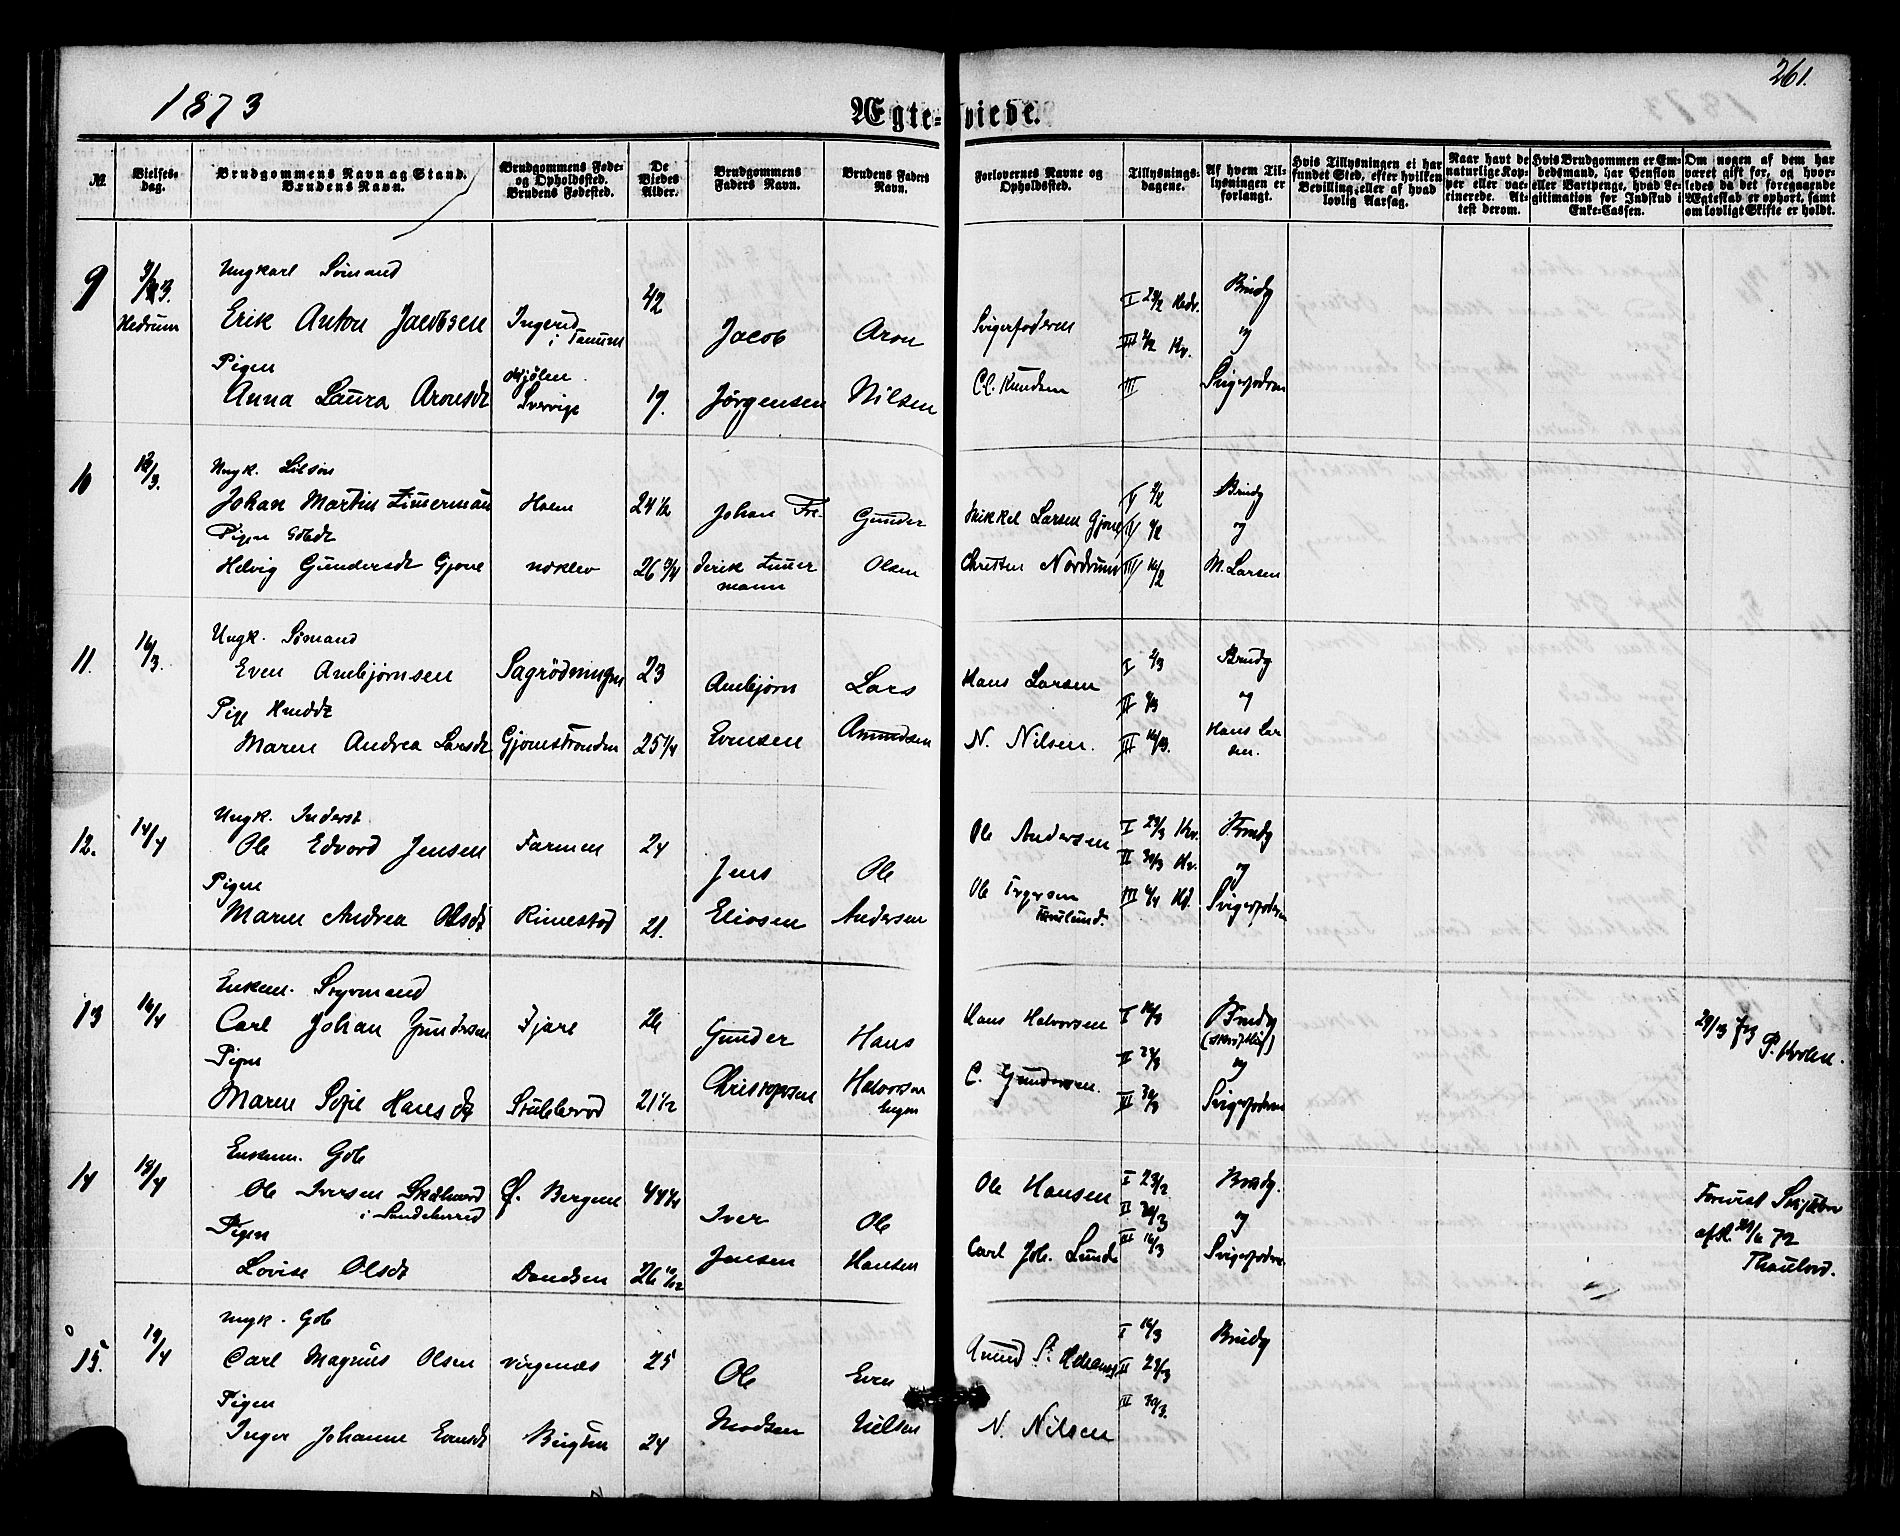 1873
Ægte-viede.
261.
№
Vielses-
dag.
Brudgommens Navn og Stand.
Brudens Navn.
Brudgommens Føde-
og Opholdssted.
Brudens Fødested.
De
Viedes
Alder.
Brudgommens
Faders Navn.
Brudens Faders
Navn.
Forlovernes Navne og
Opholdssted.
Tillysnings-
dagene.
Af hvem Til-
lysningen er
forlangt.
Hvis Tillysningen ei har
fundet Sted, efter hvilken
Bevilling, eller af hvad
lovlig Aarsag.
Naar havt de
naturlige Kop-
per eller vac-
cinerede. At-
test derom.
Hvis Brudgommen er Em-
bedsmand, har Pension
eller Vartpenge, hvad Le-
gitimation for Indskud i
Enke-Cassen.
Om nogen af dem har
været gift før, og hvor-
ledes da det foregaaende
Ægteskab er ophørt, samt
om lovligt Skifte er holdt.
9
Hedrum
Ungkarl Sömand
Erik Anton Jacobsen
Pigen
Anna Laura Aronsdt
i Tanum
Sverrige
42
19.
Jacob
Jørgensen
Aron
Nilsen
Svigerfaderen
Cl. Knudsen
I 23/2 Hedr.
III
Brudg
og
Svigerfadren
10
12/3.
Ungk.
Johan Martin Zimerman
Pigen
Helvig Gundersdt Gjone
Holm
24 1/2
26 3/4
Johan Fre-
derik Zimer
mann
Gunder
Olsen
Mikkel Larsen Gjone
Christen Nordrum
I 2/2
II 9/2
III 16/2
Brudg
og
M. Larsen
11.
16/3.
Ungk. Sömand
Even Anbjørnsen
Pige
Maren Andrea Larsdt
Sagrödningen
Gjonestranden
23
25 1/4
Anbjørn
Evensen
Lars
Amundsen
Hans Larsen
N. Nilsen.
I 2/3
II 9/3
III 16/3.
Brudg
og
Hans Lar
sen.
12.
14/4
Ungk. Inderst
Ole Edvard Jensen
Pigen
Maren Andrea Olsdt
Farmen
Rimestad
24
21.
Jens
Eliasen
Ole
Andersen
Ole Andersen
Ole
I 23/3 Kv.
II 30/3 Kv.
III
Brudg
og
Svigerfaderen
13
16/4
Enkem. Styrmand
Carl Johan Gundersen
Pigen
Maren Sofie Hansdt
Fjære
Stubberød
26
21 1/2
Gunder
Christophersen
Hans
Halvorsen
Hans Halvorsen
C. Gundersen.
I 16/3
II 23/3
III 30/3
Brudg
(skriftlig)
og
Svigerfaderen
14
19/4
Enkem. Gdb
Ole Iversen
i Sandeherred
Pigen
Lovise Olsdt
Ø. Bergene
44 1/4
26
Iver
Jansen
Ole
Hansen
Ole Hansen
Carl Joh. Lund
I 23/2
II
III 16/3
Brudg.
og
Svigerfadren
15.
19/4
Ungk. Gdb
Carl Magnus Olsen
Pigen
Inger Johanne Evensdt
25
24
Ole
Madsen
Even
Nielsen
N. Nilsen
I 16/3
II 23/3
III 30/3.
Brudg